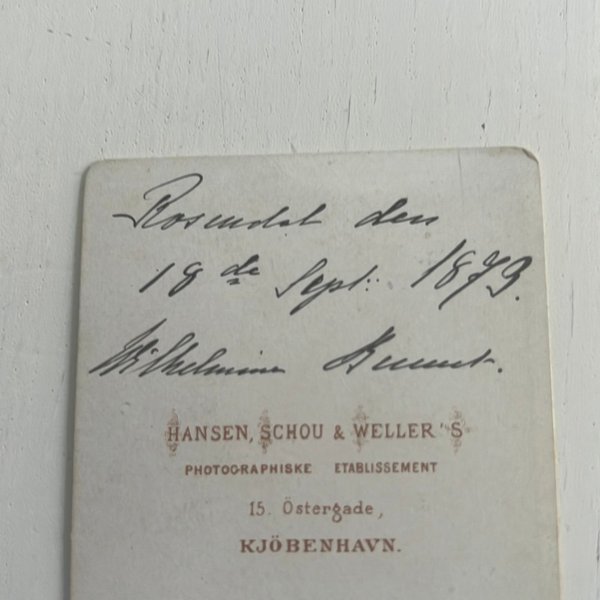 Rosendal den
18de Sept: 1873.
Wilhelmine
HANSEN, SCHOU & WELLER'S
PHOTOGRAPHISKE ETABLISSEMENT
15. Östergade,
KJÖBENHAVN.